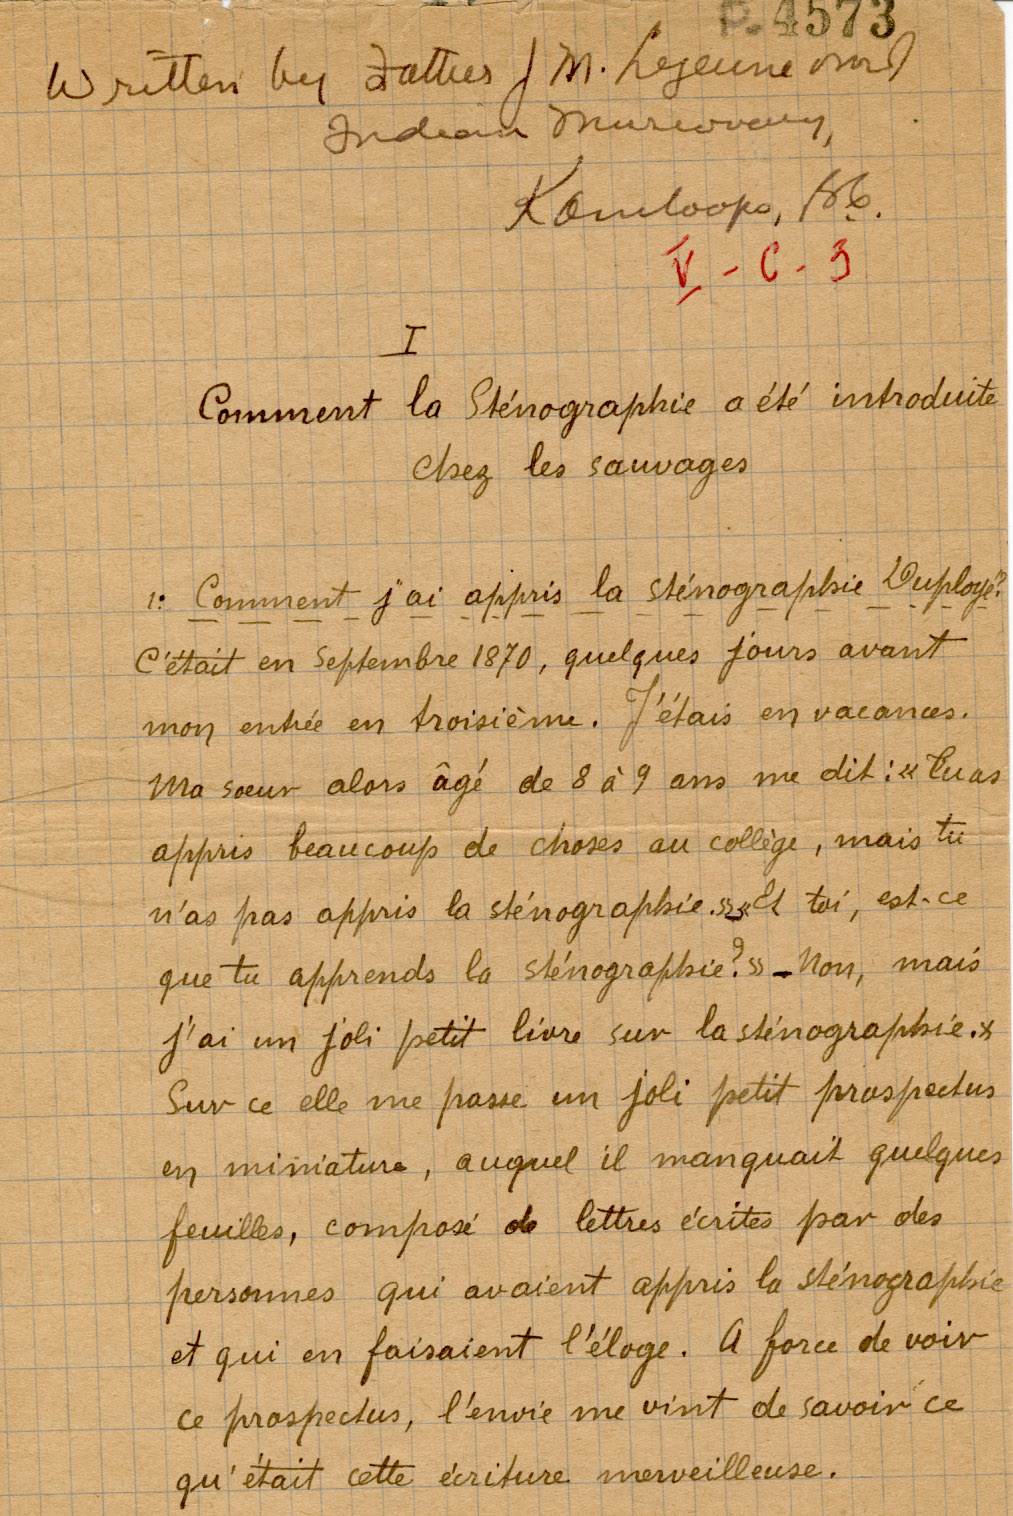 P. 4573
Written by Father J M. Lejeune
Indian Missionary,
Kamloops, BC.
V - C - 3
I
Comment la Sténographie a été introduite
chez les sauvages
1: Comment j'ai appris la sténographie Duployé?
C'était en Septembre 1870, quelques jours avant
mon entrée en troisième. J'étais en vacances.
Ma soeur alors âgé de 8 à 9 ans me dit: « Tu as
appris beaucoup de choses au collège, mais tu
n'as pas appris la sténographie.» « Et toi, est-ce
que tu apprends la sténographie?» - Non, mais
j'ai un joli petit livre sur la sténographie.»
Sur ce elle me passe un joli petit prospectus
en miniature, auquel il manquait quelques
feuilles, composé de lettres écrites par des
personnes qui avaient appris la sténographie
et qui en faisaient l'éloge. A force de voir
ce prospectus, l'envie me vint de savoir ce
qu'était cette écriture merveilleuse.